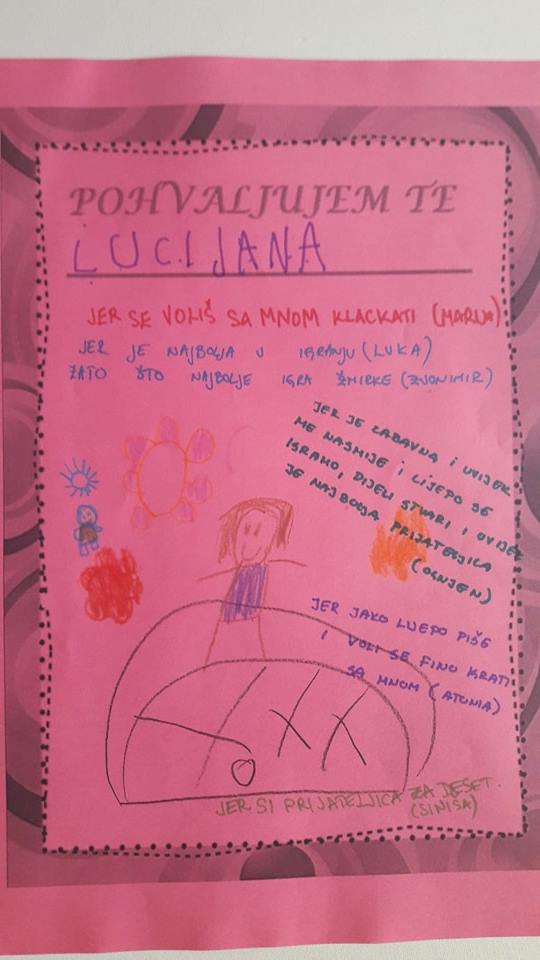 POHVALJUJEM TE
LUCIJANA
JER SE VOLIŠ SA MNOM KLACKATI (MARIJA)
JER JE NAJBOLJA U IGRANJU (LUKA)
ZATO ŠTO NAJBOLJE IGRA ŽMIRKE (ZVONIMIR)
JER JE ZABAVNA I UVIJEK
ME NASMIJE I LIJEPO SE
IGRAMO, DIJELI STVARI I UVIJEK
JE NAJBOLJA PRIJATELJICA
(OGNJEN)
JER JAKO LIJEPO PIŠE
I VOLI SE FINO IGRATI
SA MNOM (ATONIA)
JER SI PRIJATELJICA ZA DESET.
(SINIŠA)